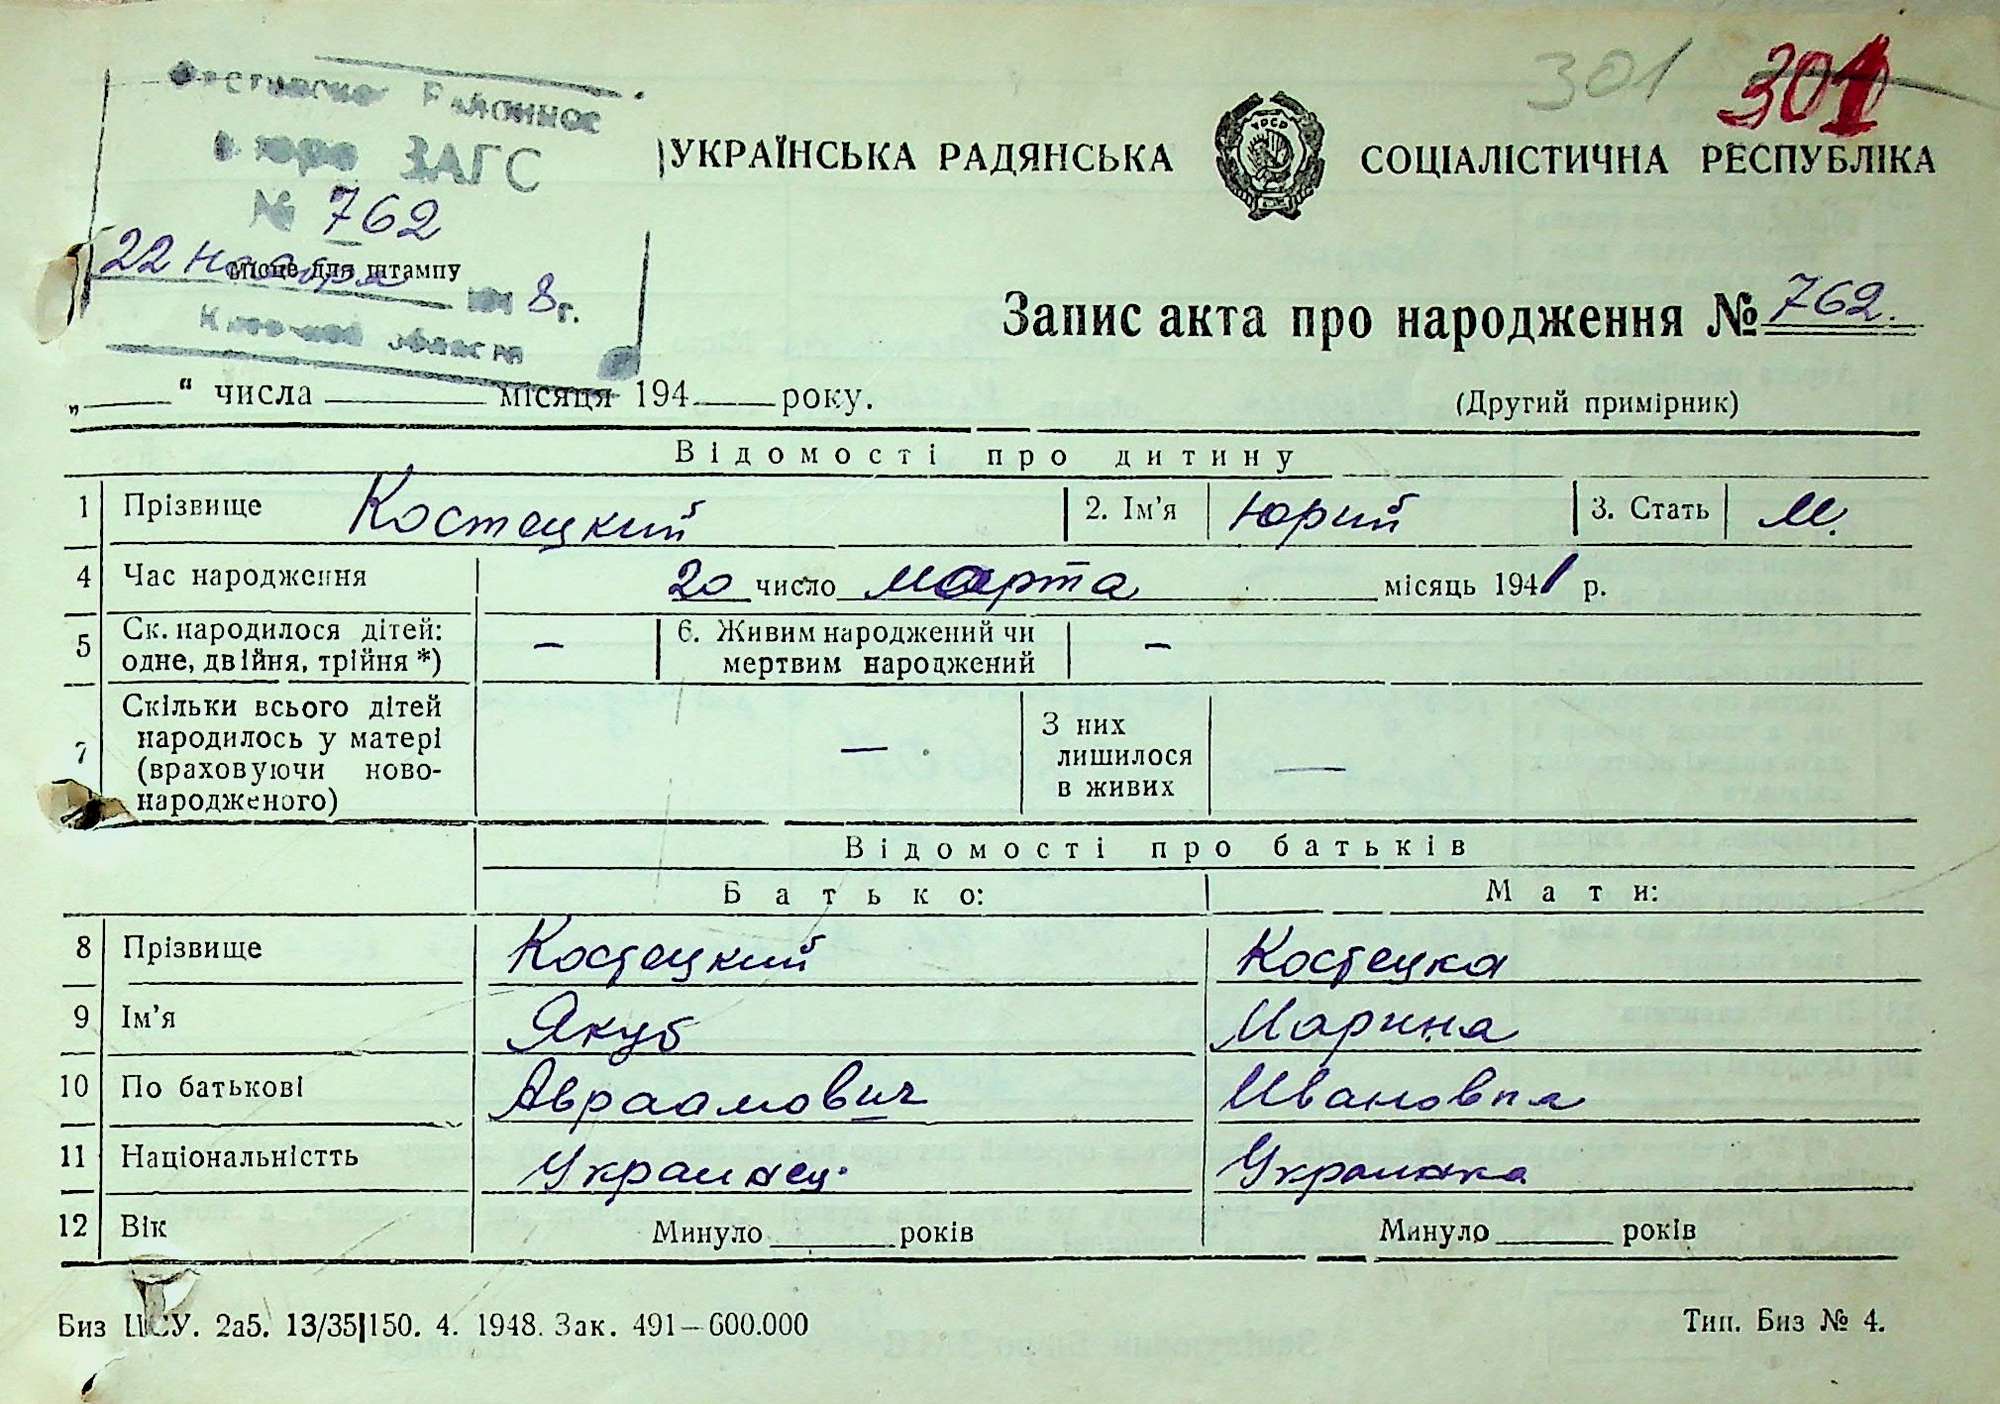 301 301
Районное
бюро ЗАГС
№ 762
22 ноября 1948 г.
Місце для штампу
области
УКРАЇНСЬКА РАДЯНСЬКА СОЦІАЛІСТИЧНА РЕСПУБЛІКА
УРСР
Запис акта про народження № 762.
„ “ числа місяця 194 року. (Другий примірник)
Відомості про дитину
1 Прізвище Костецкий 2. Ім'я Юрий 3. Стать М.
4 Час народження 20 число марта місяць 1941 р.
5 Ск. народилося дітей: одне, двійня, трійня *) — 6. Живим народжений чи мертвим народжений —
7 Скільки всього дітей народилось у матері (враховуючи ново-народженого) — З них лишилося в живих —
Відомості про батьків
Батько: Мати:
8 Прізвище Костецкий Костецка
9 Ім'я Якуб Марина
10 По батькові Авраамович Ивановна
11 Національністть Украинец. Украинка
12 Вік Минуло років Минуло років
Биз ЦСУ. 2а5. 13/35|150. 4. 1948. Зак. 491—600.000 Тип. Биз № 4.